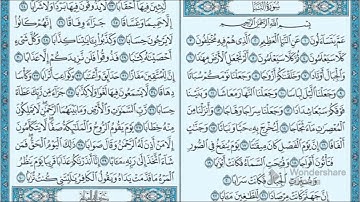 سُورَةُ النَّبَإِ
بِسْمِ اللَّهِ الرَّحْمَٰنِ الرَّحِيمِ
عَمَّ يَتَسَاءَلُونَ ١ عَنِ النَّبَإِ الْعَظِيمِ ٢ الَّذِي هُمْ فِيهِ مُخْتَلِفُونَ ٣
كَلَّا سَيَعْلَمُونَ ٤ ثُمَّ كَلَّا سَيَعْلَمُونَ ٥ أَلَمْ نَجْعَلِ الْأَرْضَ مِهَادًا ٦
وَالْجِبَالَ أَوْتَادًا ٧ وَخَلَقْنَاكُمْ أَزْوَاجًا ٨ وَجَعَلْنَا نَوْمَكُمْ سُبَاتًا
٩ وَجَعَلْنَا اللَّيْلَ لِبَاسًا ١٠ وَجَعَلْنَا النَّهَارَ مَعَاشًا ١١ وَبَنَيْنَا
فَوْقَكُمْ سَبْعًا شِدَادًا ١٢ وَجَعَلْنَا سِرَاجًا وَهَّاجًا ١٣ وَأَنْزَلْنَا مِنَ
الْمُعْصِرَاتِ مَاءً ثَجَّاجًا ١٤ لِنُخْرِجَ بِهِ حَبًّا وَنَبَاتًا ١٥ وَجَنَّاتٍ
أَلْفَافًا ١٦ إِنَّ يَوْمَ الْفَصْلِ كَانَ مِيقَاتًا ١٧ يَوْمَ يُنْفَخُ فِي الصُّورِ
فَتَأْتُونَ أَفْوَاجًا ١٨ وَفُتِحَتِ السَّمَاءُ فَكَانَتْ أَبْوَابًا ١٩
وَسُيِّرَتِ الْجِبَالُ فَكَانَتْ سَرَابًا ٢٠
إِنَّ جَهَنَّمَ كَانَتْ مِرْصَادًا ٢١ لِلطَّاغِينَ مَآبًا ٢٢
Wondershare
لَابِثِينَ فِيهَا أَحْقَابًا ٢٣ لَا يَذُوقُونَ فِيهَا بَرْدًا وَلَا شَرَابًا ٢٤
إِلَّا حَمِيمًا وَغَسَّاقًا ٢٥ جَزَاءً وِفَاقًا ٢٦ إِنَّهُمْ كَانُوا
لَا يَرْجُونَ حِسَابًا ٢٧ وَكَذَّبُوا بِآيَاتِنَا كِذَّابًا ٢٨ وَكُلَّ شَيْءٍ
أَحْصَيْنَاهُ كِتَابًا ٢٩ فَذُوقُوا فَلَنْ نَزِيدَكُمْ إِلَّا عَذَابًا ٣٠
إِنَّ لِلْمُتَّقِينَ مَفَازًا ٣١ حَدَائِقَ وَأَعْنَابًا ٣٢ وَكَوَاعِبَ أَتْرَابًا ٣٣
وَكَأْسًا دِهَاقًا ٣٤ لَا يَسْمَعُونَ فِيهَا لَغْوًا وَلَا كِذَّابًا ٣٥ جَزَاءً مِنْ رَبِّكَ عَطَاءً
حِسَابًا ٣٦ رَبِّ السَّمَاوَاتِ وَالْأَرْضِ وَمَا بَيْنَهُمَا الرَّحْمَٰنِ لَا يَمْلِكُونَ
مِنْهُ خِطَابًا ٣٧ يَوْمَ يَقُومُ الرُّوحُ وَالْمَلَائِكَةُ صَفًّا لَا يَتَكَلَّمُونَ
إِلَّا مَنْ أَذِنَ لَهُ الرَّحْمَٰنُ وَقَالَ صَوَابًا ٣٨ ذَٰلِكَ الْيَوْمُ الْحَقُّ
فَمَنْ شَاءَ اتَّخَذَ إِلَىٰ رَبِّهِ مَآبًا ٣٩ إِنَّا أَنْذَرْنَاكُمْ عَذَابًا قَرِيبًا يَوْمَ يَنْظُرُ
الْمَرْءُ مَا قَدَّمَتْ يَدَاهُ وَيَقُولُ الْكَافِرُ يَا لَيْتَنِي كُنْتُ تُرَابًا ٤٠